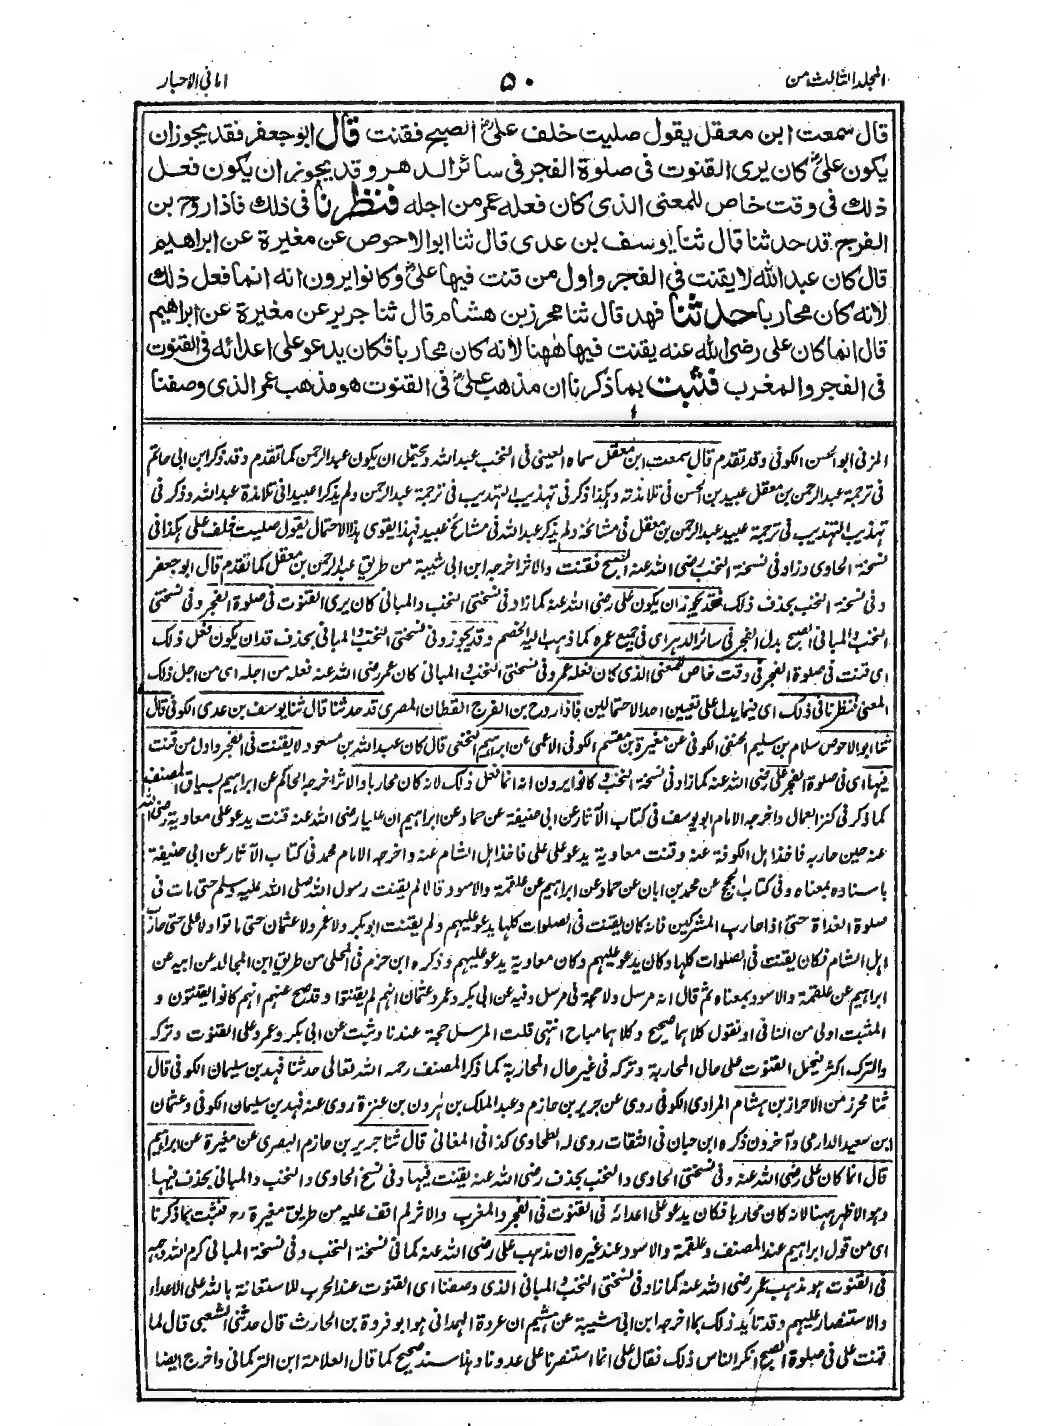 المجلد الثالث من
۵۰
امانی الاحبار
قال سمعت ابن معقل يقول صليت خلف علیؓ الصبح فقنت قال ابو جعفر فقد يجوز ان
يكون علیؓ كان يرى القنوت فى صلوة الفجر فى سائر الدهر و قد يجوز ان يكون فعل
ذلك فى وقت خاص للمعنى الذى كان فعله عمر من اجله فنظرنا فى ذلك فاذا روح بن
الفرج قد حدثنا قال ثنا يوسف بن عدى قال ثنا ابو الاحوص عن مغيرة عن ابراهيم
قال كان عبد الله لا يقنت فى الفجر و اول من قنت فيها علیؓ و كانوا يرون انه انما فعل ذلك
لانه كان محاربا حدثنا فهد قال ثنا محرز بن هشام قال ثنا جرير عن مغيرة عن ابراهيم
قال انما كان على رضى الله عنه يقنت فيها ههنا لانه كان محاربا فكان يدعو على اعدائه فى القنوت
فى الفجر و المغرب فثبت بما ذكرنا ان مذهب علیؓ فى القنوت هو مذهب عمر الذى وصفنا
المزنى ابو الحسن الكوفى و قد تقدم قال سمعت ابن معقل سماه العينى فى النخب عبد الله و يحتمل ان يكون عبد الرحمن كما تقدم و قد ذكر ابن ابى حاتم
فى ترجمة عبد الرحمن بن معقل عبيد بن الحسن فى تلامذته و هكذا ذكر فى تهذيب التهذيب فى ترجمة عبد الرحمن و لم يذكرا عبيدا فى تلامذة عبد الله و ذكر فى
تهذيب التهذيب فى ترجمة عبيد عبد الرحمن بن معقل فى مشائخه و لم يذكر عبد الله فى مشائخ عبيد فهذا يقوى هذا الاحتمال يقول صليت خلف على هكذا فى
نسخة الحاوى و زاد فى نسخة النخب رضى الله عنه الصبح فقنت و الاثر اخرجه ابن ابى شيبة من طريق عبد الرحمن بن معقل كما تقدم قال ابو جعفر
و فى نسخة النخب بحذف ذلك فقد يجوز ان يكون على رضى الله عنه كما زاد فى نسختى النخب و المبانى كان يرى القنوت فى صلوة الفجر و فى نسختى
النخب و المبانى الصبح بدل الفجر فى سائر الدهر اى فى جميع عمره كما ذهب اليه الخصم و قد يجوز و فى نسختى النخب و المبانى بحذف قد ان يكون فعل ذلك
اى قنت فى صلوة الفجر فى وقت خاص للمعنى الذى كان فعله عمر و فى نسختى النخب و المبانى كان عمر رضى الله عنه فعله من اجله اى من اجل ذلك
المعنى فنظرنا فى ذلك اى فيما يدل على تعيين احد الاحتمالين فاذا روح بن الفرج القطان المصرى قد حدثنا قال ثنا يوسف بن عدى الكوفى قال
ثنا ابو الاحوص سلام بن سليم الحنفى الكوفى عن مغيرة بن مقسم الكوفى الاعمى عن ابراهيم النخعى قال كان عبد الله بن مسعود لا يقنت فى الفجر و اول من قنت
فيها اى فى صلوة الفجر على رضى الله عنه كما زاد فى نسخة النخب و كانوا يرون انه انما فعل ذلك لانه كان محاربا و الاثر اخرجه الحاكم عن ابراهيم بسياق المصنف
كما ذكر فى كنز العمال و اخرجه الامام ابو يوسف فى كتاب الآثار عن ابى حنيفة عن حماد عن ابراهيم ان عليا رضى الله عنه قنت يدعو على معاوية رضى الله
عنه حين حاربه فاخذ اهل الكوفة عنه و قنت معاوية يدعو على على فاخذ اهل الشام عنه و اخرجه الامام محمد فى كتاب الآثار عن ابى حنيفة
باسناده بمعناه و فى كتاب الحجج عن محمد بن ابان عن حماد عن ابراهيم عن علقمة و الاسود قالا لم يقنت رسول الله صلى الله عليه وسلم حتى مات فى
صلوة الغداة حتى اذا حارب المشركين فانه كان يقنت فى الصلوات كلها يدعو عليهم و لم يقنت ابو بكر و لا عمر و لا عثمان حتى ماتوا و لا على حتى حارب
اهل الشام فكان يقنت فى الصلوات كلها و كان يدعو عليهم و كان معاوية يدعو عليهم و ذكره ابن حزم فى المحلى من طريق ابن المجالد عن ابيه عن
ابراهيم عن علقمة و الاسود بمعناه ثم قال انه مرسل و لا حجة فى مرسل و فيه عن ابى بكر و عمر و عثمان انهم لم يقنتوا و قد صح عنهم انهم كانوا يقنتون و
المثبت اولى من النافى او نقول كلاهما صحيح و كلاهما مباح انتهى قلت المرسل حجة عندنا و ثبت عن ابى بكر و عمر و على القنوت و تركه
و الترك اكثر فيحمل القنوت على حال المحاربة و تركه فى غير حال المحاربة كما ذكر المصنف رحمه الله تعالى حدثنا فهد بن سليمان الكوفى قال
ثنا محرز من الاحراز بن هشام المرادى الكوفى روى عن جرير بن حازم و عبد الملك بن هرون بن عنزة روى عنه فهد بن سليمان الكوفى و عثمان
ابن سعيد الدارمى و آخرون ذكره ابن حبان فى الثقات روى له الطحاوى كذا فى المغانى قال ثنا جرير بن حازم البصرى عن مغيرة عن ابراهيم
قال انما كان على رضى الله عنه و فى نسختى الحاوى و النخب بحذف رضى الله عنه يقنت فيها و فى نسخ الحاوى و النخب و المبانى بحذف فيها
و هو الاظهر ههنا لانه كان محاربا فكان يدعو على اعدائه فى القنوت فى الفجر و المغرب و الاثر لم اقف عليه من طريق مغيرة رح فثبت بما ذكرنا
اى من قول ابراهيم عند المصنف و علقمة و الاسود عند غيره ان مذهب على رضى الله عنه كما فى نسخة النخب و فى نسخة المبانى كرم الله وجهه
فى القنوت هو مذهب عمر رضى الله عنه كما زاد فى نسختى النخب و المبانى الذى وصفنا اى القنوت عند الحرب للاستعانة بالله على الاعداء
و الاستنصار عليهم و قد تأيد ذلك بما اخرجه ابن ابى شيبة عن هشيم ان عروة الهمدانى هو ابو فروة بن الحارث قال حدثنى الشعبى قال لما
قنت على فى صلوة الصبح انكر الناس ذلك فقال على انما استنصرنا على عدونا و هذا سند صحيح كما قال العلامة ابن التركمانى و اخرج ايضا